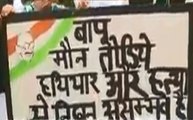 बापू
मौन तोड़िये
हथियार और हत्या
से विघ्न असम्भव है